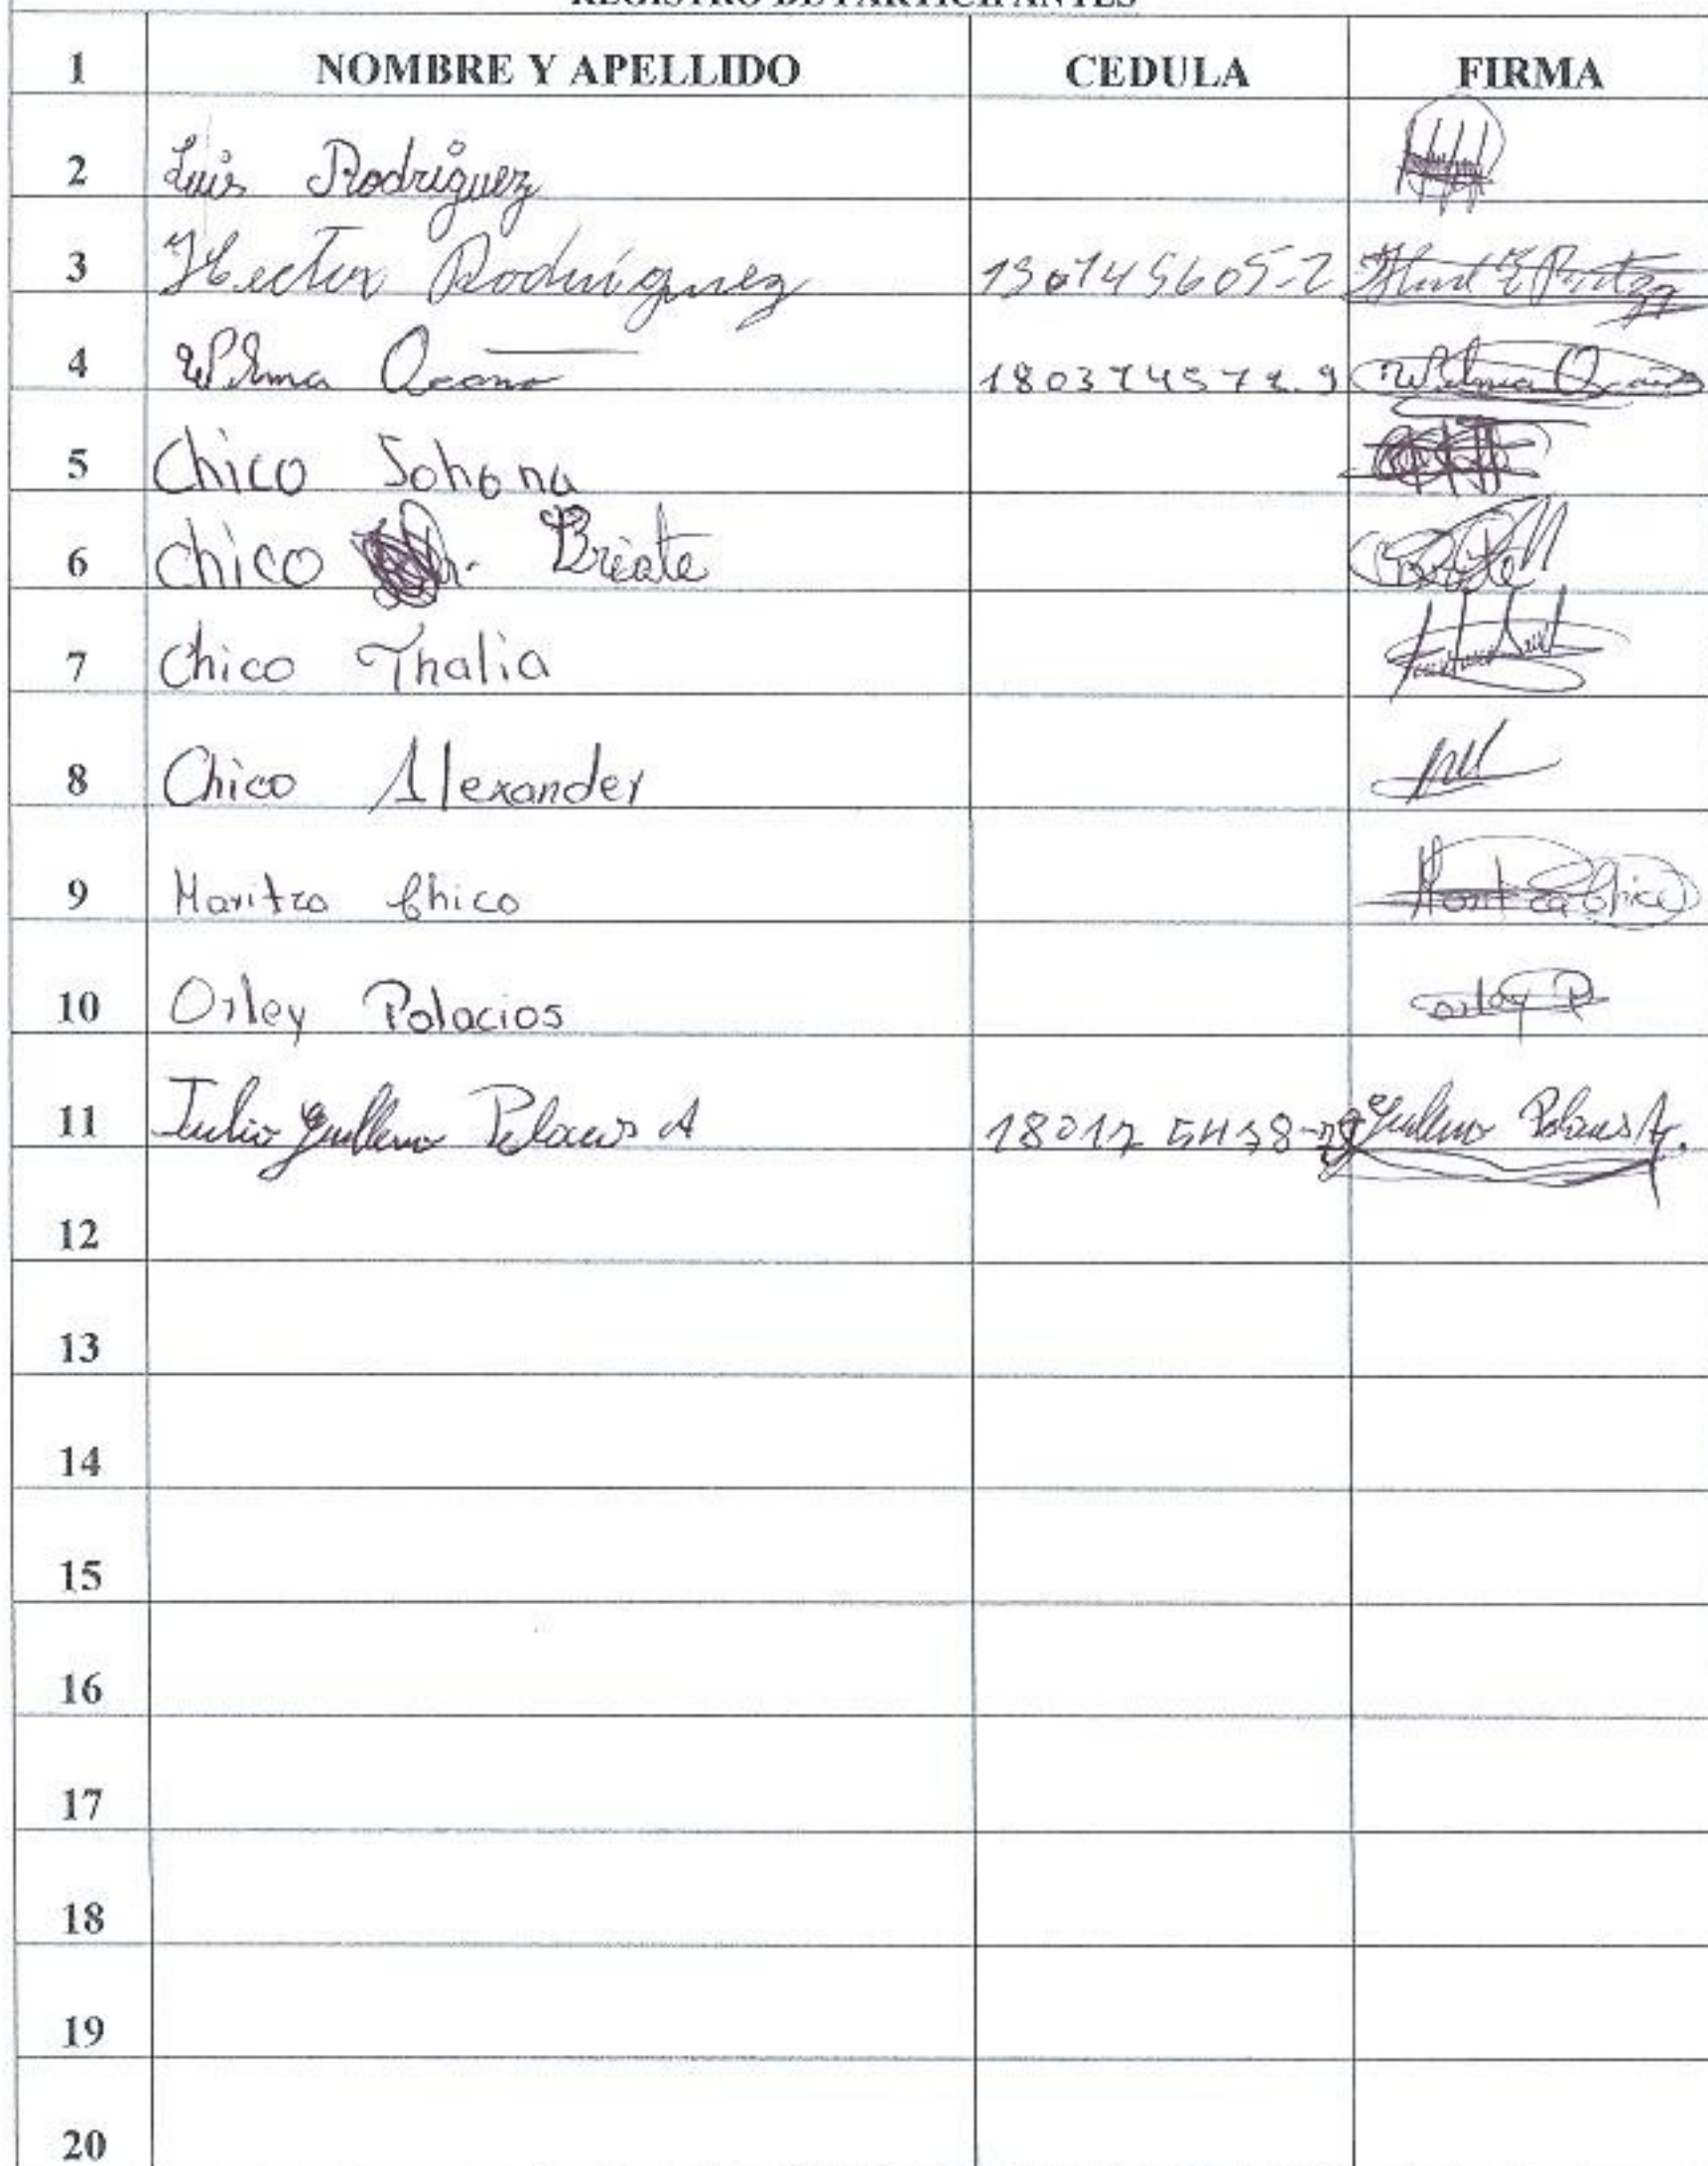 REGISTRO DE PARTICIPANTES
1 NOMBRE Y APELLIDO CEDULA FIRMA
2 Luis Rodriguez
3 Hector Rodriguez 130745605-2
4 Wilma Ocana 180374572-9 Wilma
5 Chico Johana
6 Chico
7 Chico Thalia
8 Chico Alexander
9 Maritza Chico Chico
10 Orley Palacios Orley P
11 Julio Guillermo Palacios A Guillermo Palacios A.
12
13
14
15
16
17
18
19
20